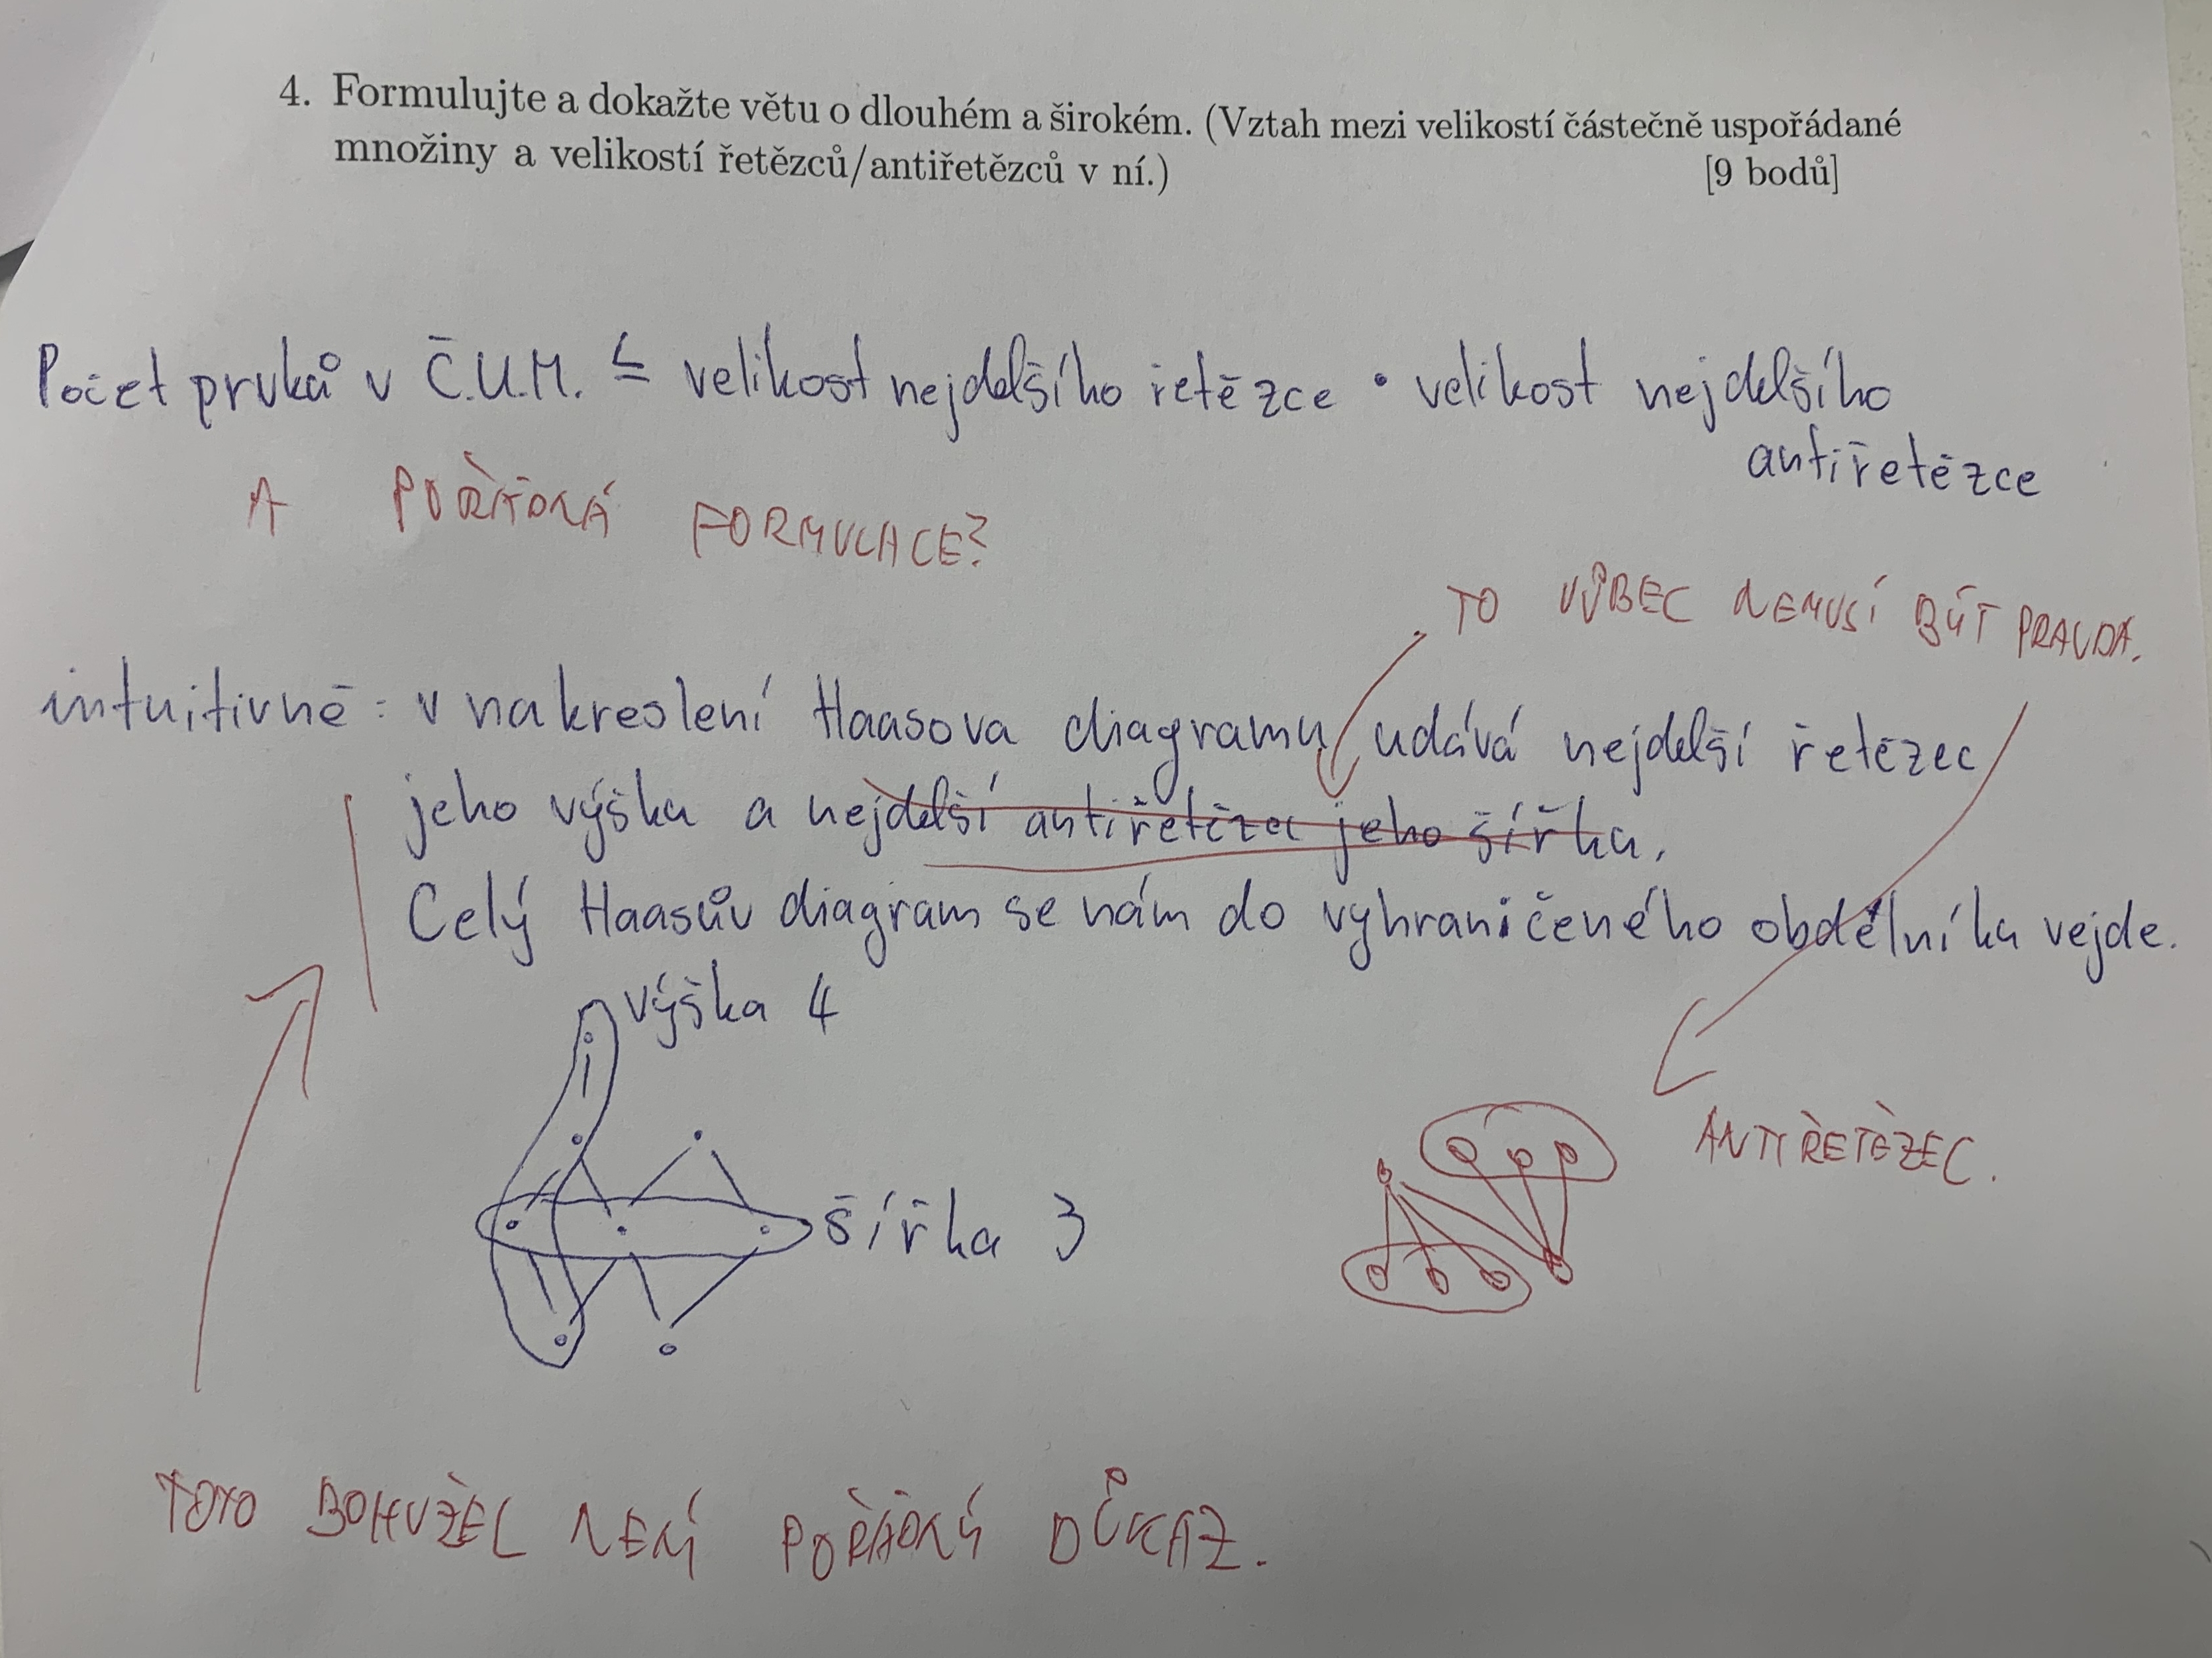 4. Formulujte a dokažte větu o dlouhém a širokém. (Vztah mezi velikostí částečně uspořádané
množiny a velikostí řetězců/antiřetězců v ní.)
[9 bodů]
Počet prvků v Č.U.M. ≤ velikost nejdelšího řetězce · velikost nejdelšího
antiřetězce
A POŘÁDNÁ FORMULACE?
TO VŮBEC NEMUSÍ BÝT PRAVDA.
intuitivně: v nakreslení Haasova diagramu udává nejdelší řetězec
jeho výšku a nejdelší antiřetězec jeho šířku.
Celý Haasův diagram se nám do vyhraničeného obdélníku vejde.
výška 4
ANTIŘETĚZEC.
šířka 3
TOTO BOHUŽEL NENÍ POŘÁDNÝ DŮKAZ.